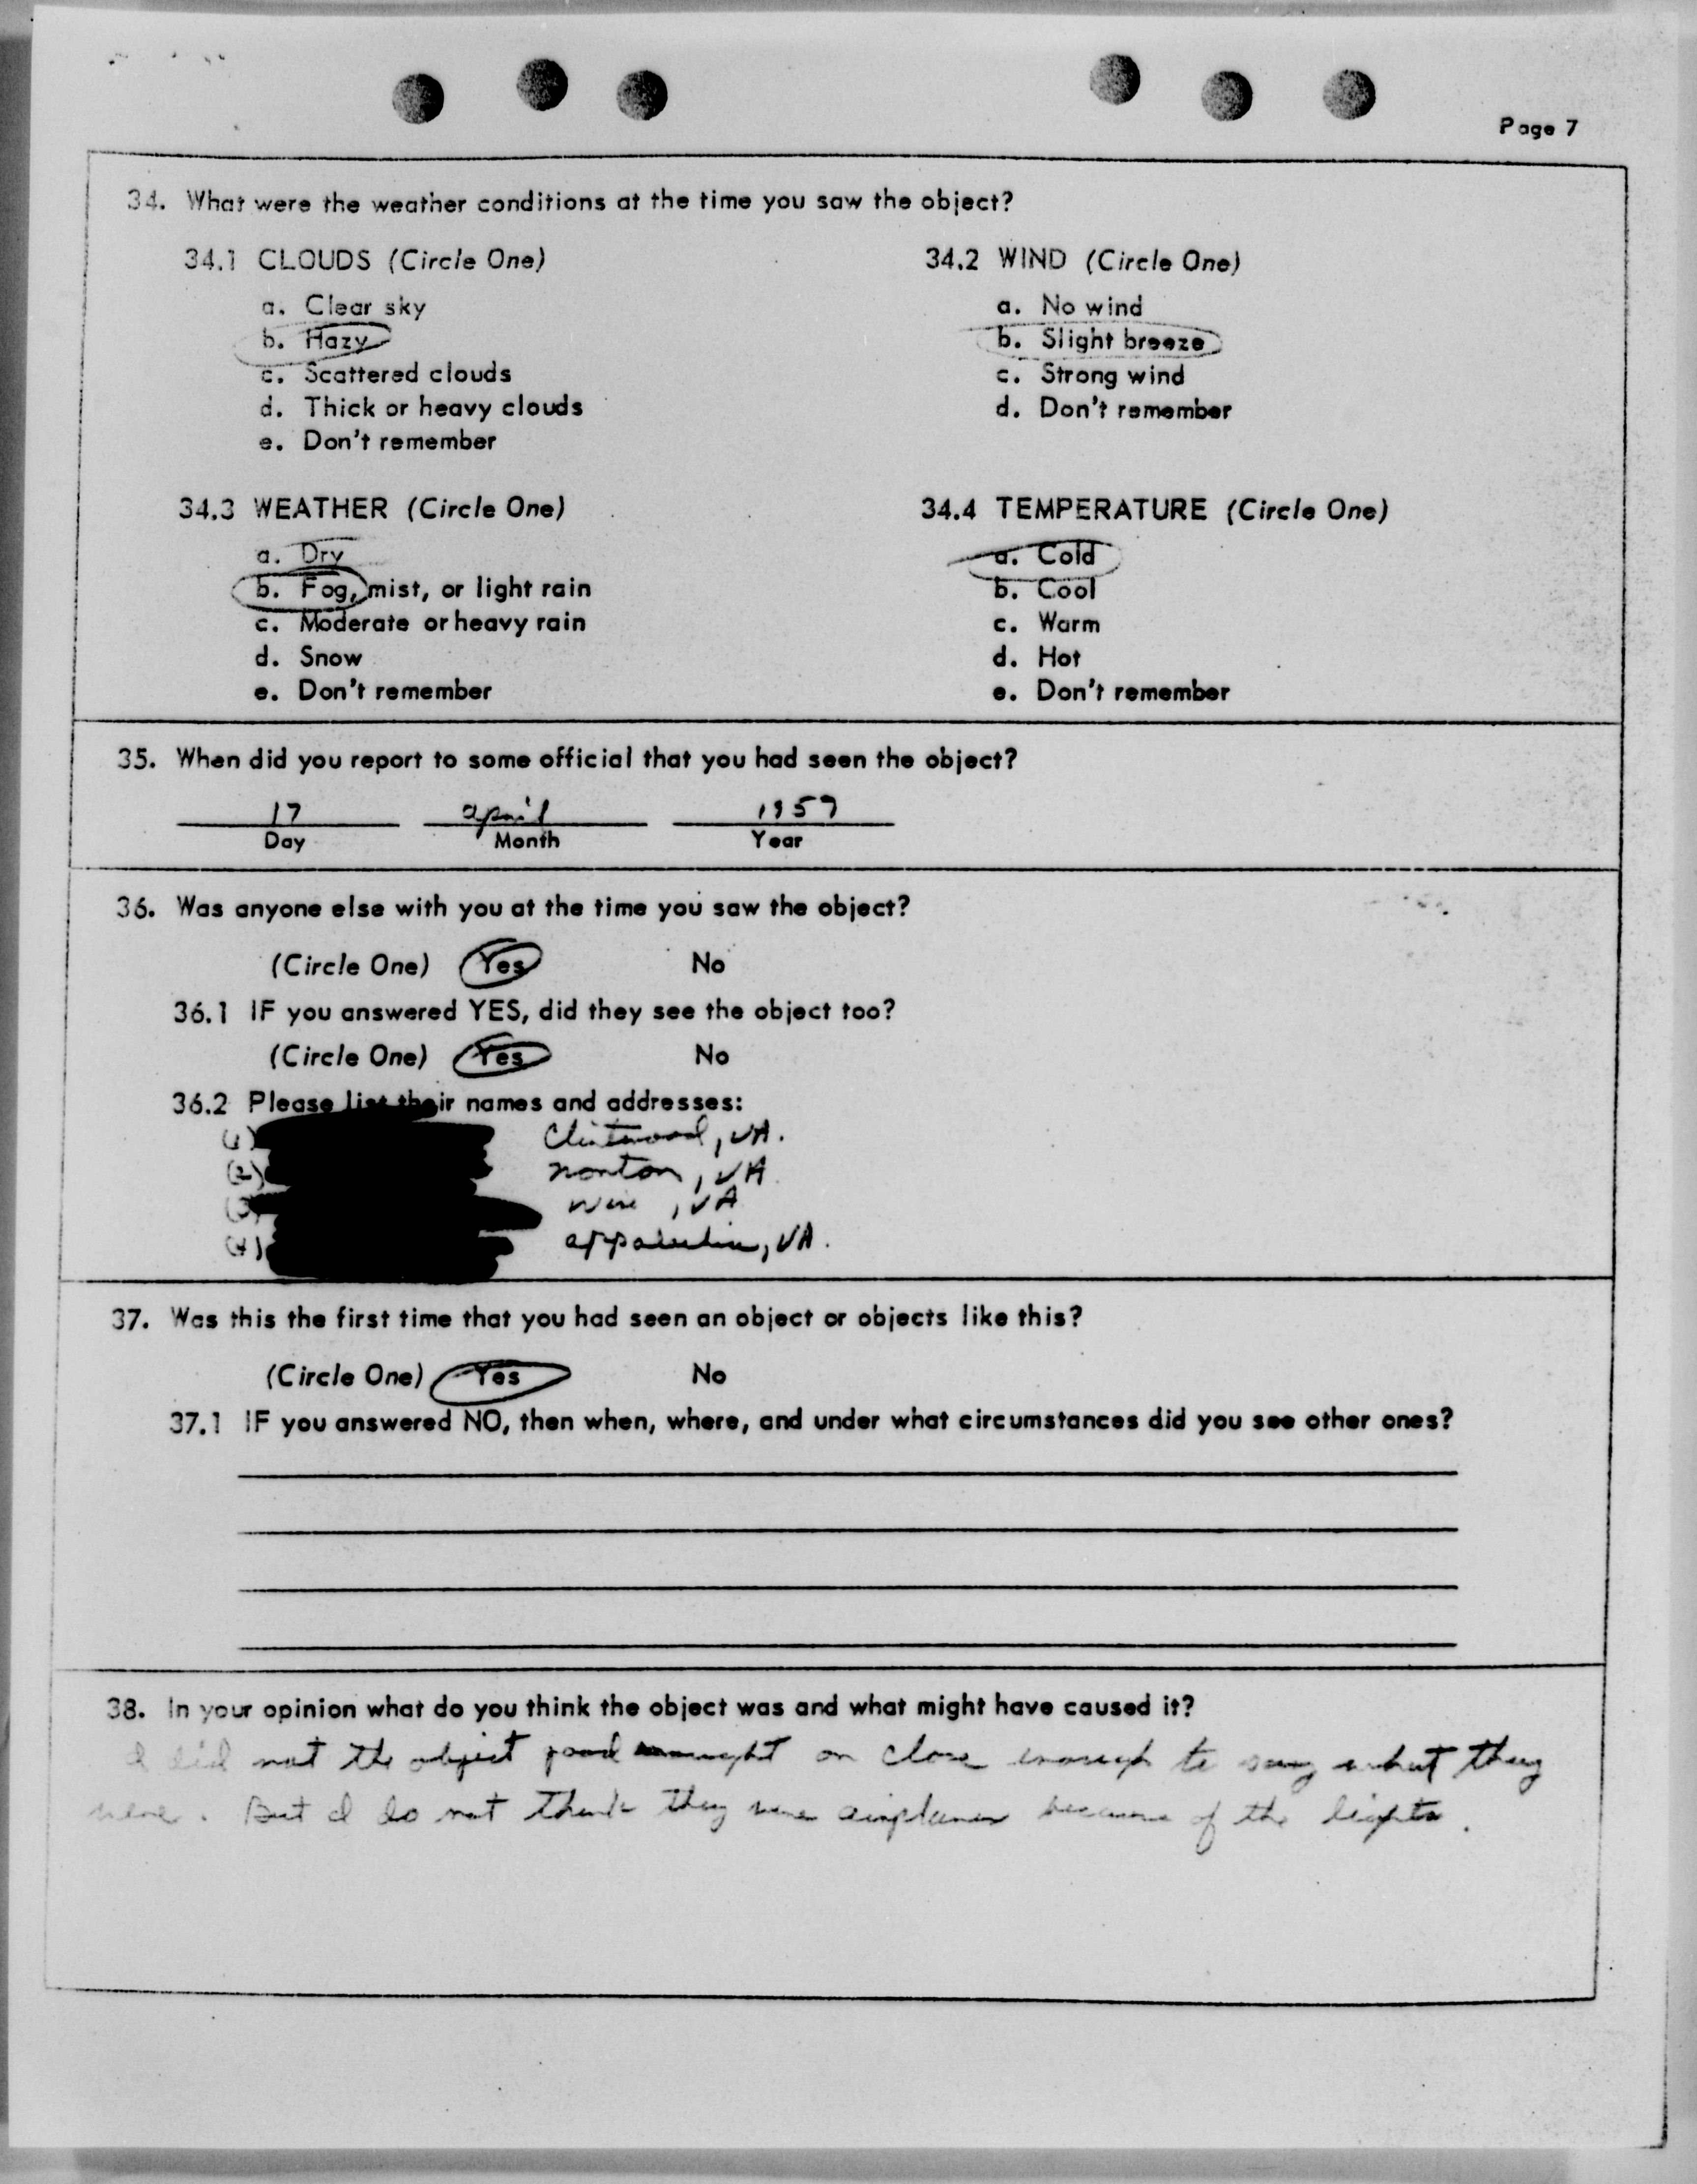 Page 7
34. What were the weather conditions at the time you saw the object?
34.1 CLOUDS (Circle One)
a. Clear sky
b. Hazy
c. Scattered clouds
d. Thick or heavy clouds
e. Don't remember
34.2 WIND (Circle One)
a. No wind
b. Slight breeze
c. Strong wind
d. Don't remember
34.3 WEATHER (Circle One)
a. Dry
b. Fog, mist, or light rain
c. Moderate or heavy rain
d. Snow
e. Don't remember
34.4 TEMPERATURE (Circle One)
a. Cold
b. Cool
c. Warm
d. Hot
e. Don't remember
35. When did you report to some official that you had seen the object?
17 april 1957
Day Month Year
36. Was anyone else with you at the time you saw the object?
(Circle One) Yes No
36.1 IF you answered YES, did they see the object too?
(Circle One) Yes No
36.2 Please list their names and addresses:
(1) Clintwood, VA.
(2) norton, VA.
(3) wise, VA
(4) appalachia, VA.
37. Was this the first time that you had seen an object or objects like this?
(Circle One) Yes No
37.1 IF you answered NO, then when, where, and under what circumstances did you see other ones?
38. In your opinion what do you think the object was and what might have caused it?
I did not the object good or close enough to say what they
were. But I do not think they were airplanes because of the lights.